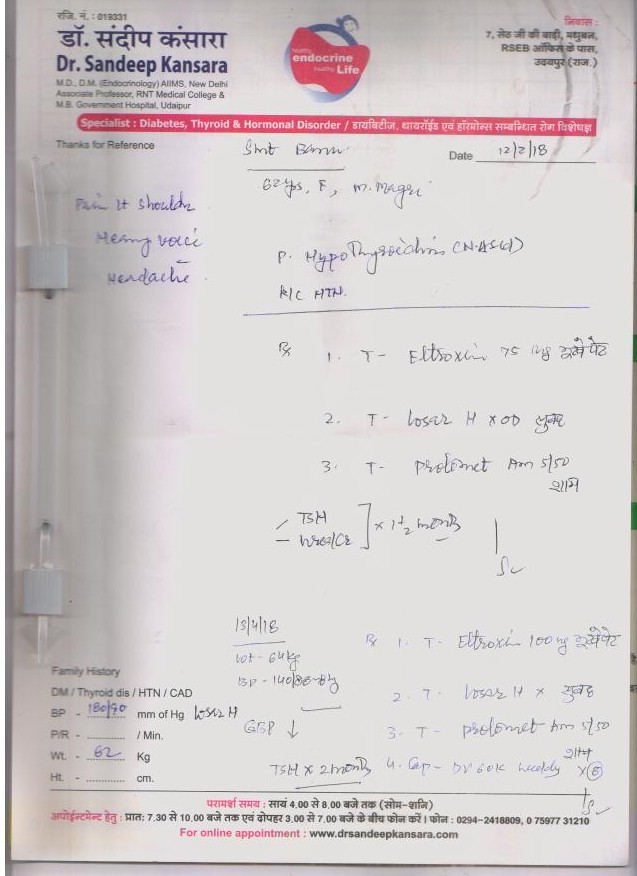 रजि. नं. : 019331
डॉ. संदीप कंसारा
Dr. Sandeep Kansara
M.D., D.M. (Endocrinology) AIIMS, New Delhi
Associate Professor, RNT Medical College &
M.B. Government Hospital, Udaipur
healthy
endocrine
healthy Life
निवास :
7, सेठ जी की बाड़ी, मधुबन,
RSEB ऑफिस के पास,
उदयपुर (राज.)
Specialist : Diabetes, Thyroid & Hormonal Disorder / डायबिटीज, थायरॉईड एवं हॉरमोन्स सम्बन्धित रोग विशेषज्ञ
Thanks for Reference
Smt
Date 12/2/18
62 yrs, F,
Pain
Heavy voice
Headache
P. Hypothyroidism
K/C HTN.
Rx 1. T- Eltroxin 75 ug
2. T- Losar H x OD सुबह
3. T- Prolomet Am 5/50
शाम
- TSH
- Urea/Cr
x 1 1/2 month
13/4/18
Wt - 64kg
BP - 140/86
Rx 1. T- Eltroxin 100 ug
2. T- Losar H x सुबह
3. T- Prolomet Am 5/50
शाम
TSH x 2 month
4. Cap- 60K weekly x 8
Family History
DM / Thyroid dis / HTN / CAD
BP - 180/90 mm of Hg Losar H
P/R - ............ / Min.
Wt. - 62 Kg
Ht. - ............ cm.
परामर्श समय : सायं 4.00 से 8.00 बजे तक (सोम-शनि)
अपोईन्टमेन्ट हेतु : प्रातः 7.30 से 10.00 बजे तक एवं दोपहर 3.00 से 7.00 बजे के बीच फोन करें। फोन : 0294-2418809, 0 75977 31210
For online appointment : www.drsandeepkansara.com